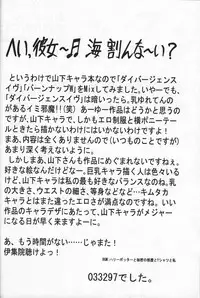 へい、彼女～♬ 海 割んな～い？
というわけで山下キャラ本なので「ダイバージェンスイ
ヴ」「バーンナップW」をMixしてみました。いやーでも、
「ダイバージェンスイヴ」は暗いったら、乳ゆれてんの
があるイミ邪魔!!(笑) あーゆー作品はどうかと思うの
ですが、山下キャラです。しかもエロ制服と横ポニーテー
ルときたら描かないわけにはいかないですわ!!
まあ、内容は全くありませんので(いつものことですが)
あまり深く考えないように。
しかしまあ、山下さんも作品にめぐまれないですねぇ。
好きな絵なんだけどなー。巨乳キャラ描く人は多くいま
すけど、山下キャラは私の最も好きなバランスなのね。乳
の大きさ、ウエストの細さ、等身などなど…キムタカ
キャラとはまた違ったエロさが満点なのですね。ほんと、
いい作品のキャラデザにあたって、山下キャラがメジャー
になる日が早く来ますように…。
あ、もう時間がない…じゃまた!
伊集院聴けよっ!
033297でした。